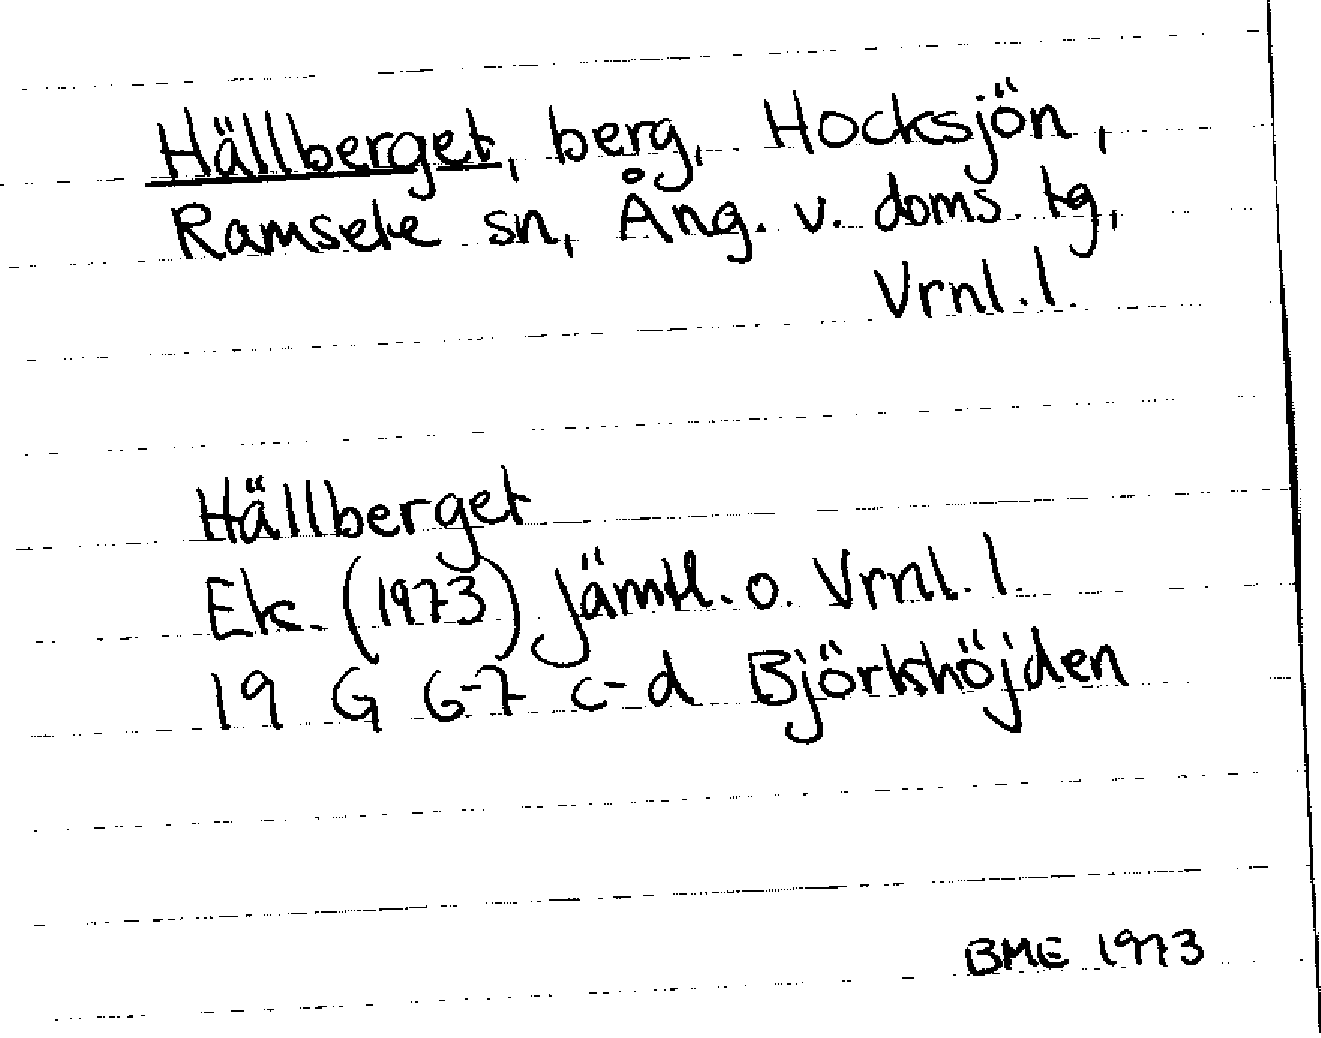 Hällberget, berg, Hocksjön,
Ramsele sn, Ång. v. doms. tg,
Vrnl. l.
Hällberget
Ek. (1973) Jämtl. o. Vrnl. l.
19 G 6-7 c-d Björkhöjden
BME 1973